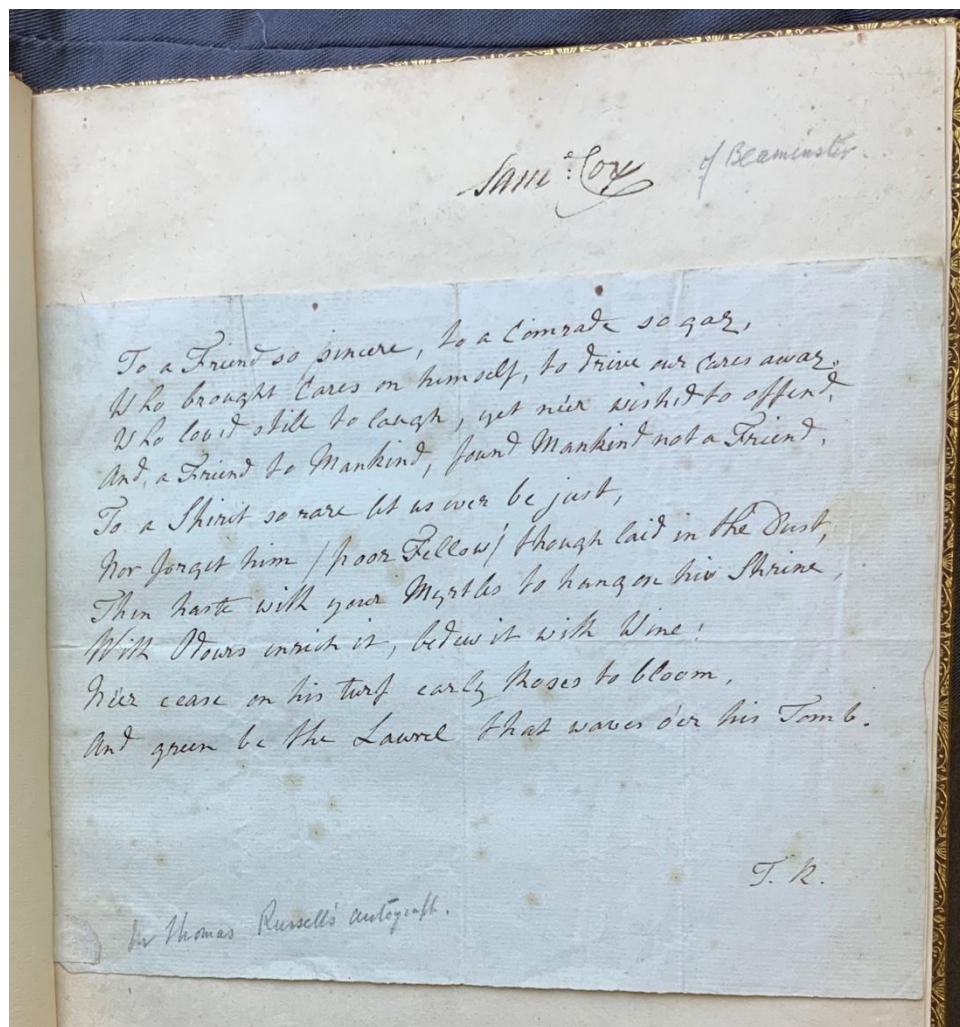 Sam.e Cox of Beaminster.
To a Friend so sincere, to a Comrade so gay,
Who brought Cares on himself, to drive our Cares away.
Who lov'd still to laugh, yet ne'er wish'd to offend,
And, a Friend to Mankind, found Mankind not a Friend,
To a Spirit so rare let us ever be just,
Nor forget him (poor Fellow) though laid in the Dust,
Then haste with your Myrtles to hang on his Shrine,
With Odours enrich it, bedew it with Wine!
Ne'er cease on his turf early Roses to bloom,
And green be the Laurel that waves o'er his Tomb.
T. R.
Thomas Russell's autograph.